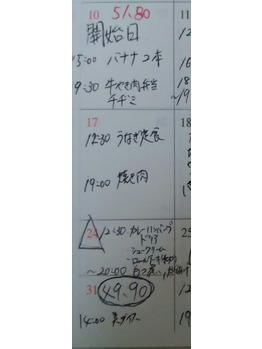 10 51.80
開始日
15:00 バナナ2本
9:30 牛やき肉弁当
チヂミ
17
12:30 うなぎ定食
19:00 焼き肉
24 12:30 カレーハンバーグ
ドリア
シュークリーム
ロールケーキ
〜20:00
31 49.90
14:00